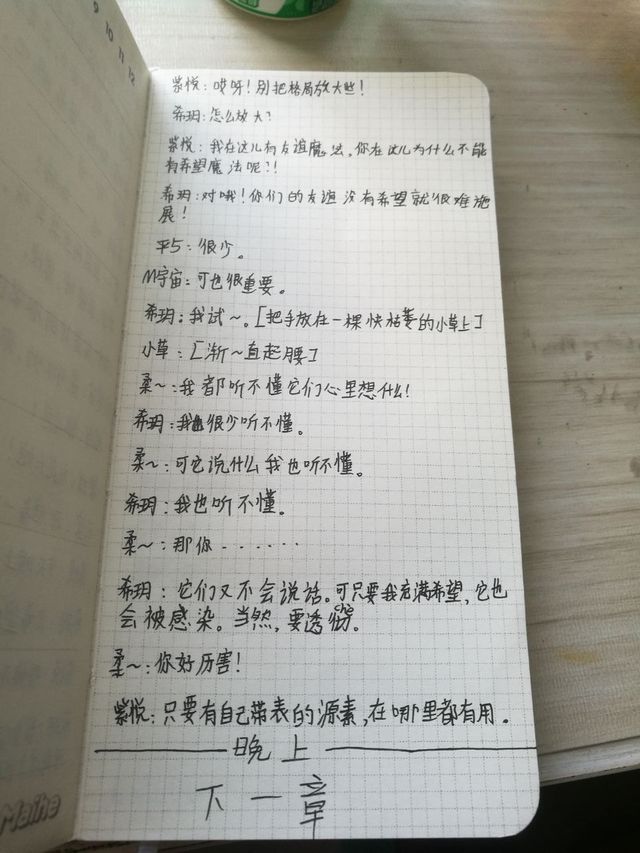 9
10
11
12
紫悦：哎呀！别把格局放大些！
希玥：怎么放大？
紫悦：我在这儿有友谊魔法，你在这儿为什么不能
有希望魔法呢？！
希玥：对哦！你们的友谊没有希望就很难施
展！
平5：很少。
M宇宙：可也很重要。
希玥：我试～。[把手放在一棵快枯萎的小草上]
小草：[渐～直起腰]
柔～：我都听不懂它们心里想什么！
希玥：我也很少听不懂。
柔～：可它说什么我也听不懂。
希玥：我也听不懂。
柔～：那你······
希玥：它们又不会说话。可只要我充满希望，它也
会被感染。当然，要透
柔～：你好厉害！
紫悦：只要有自己带表的源素，在哪里都有用。
晚上
下一章
Maihe